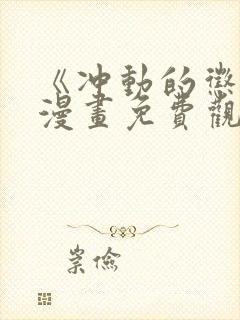 《冲動的懲
漫畫免費觀
崇儉